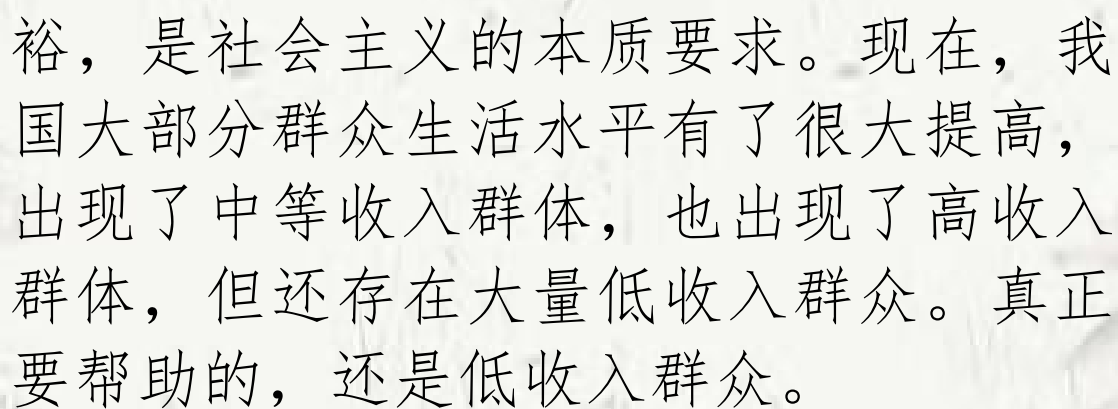 裕，是社会主义的本质要求。现在，我
国大部分群众生活水平有了很大提高，
出现了中等收入群体，也出现了高收入
群体，但还存在大量低收入群众。真正
要帮助的，还是低收入群众。